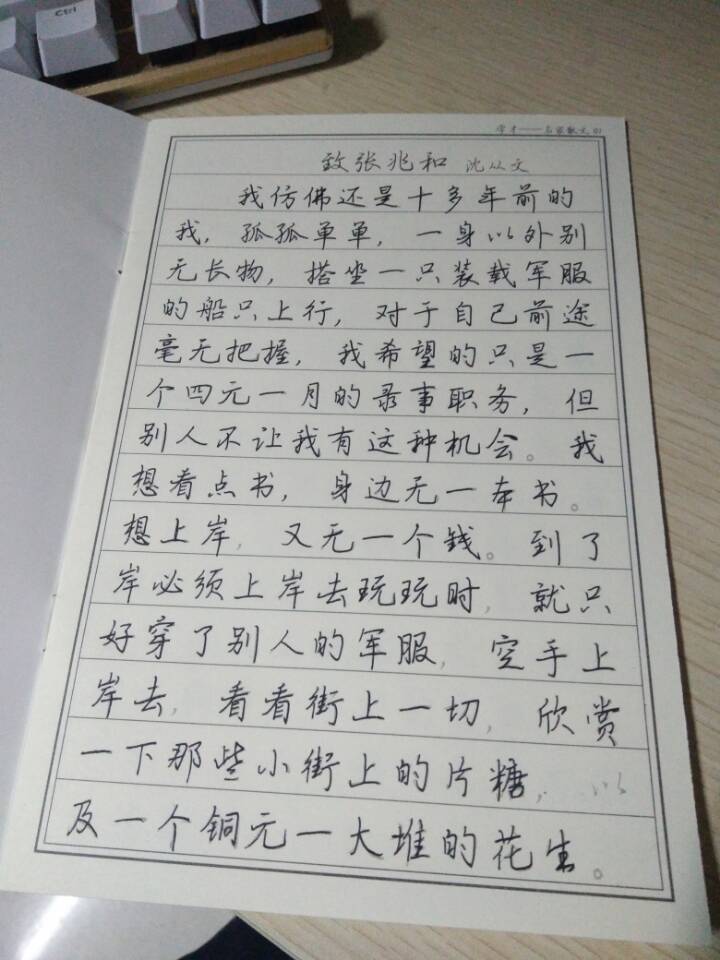 Ctrl
字才——名家散文 01
致张兆和 沈从文
我仿佛还是十多年前的
我，孤孤单单，一身以外别
无长物，搭坐一只装载军服
的船只上行，对于自己前途
毫无把握，我希望的只是一
个四元一月的录事职务，但
别人不让我有这种机会。我
想看点书，身边无一本书。
想上岸，又无一个钱。到了
岸必须上岸去玩玩时，就只
好穿了别人的军服，空手上
岸去，看看街上一切，欣赏
一下那些小街上的片糖，以
及一个铜元一大堆的花生。